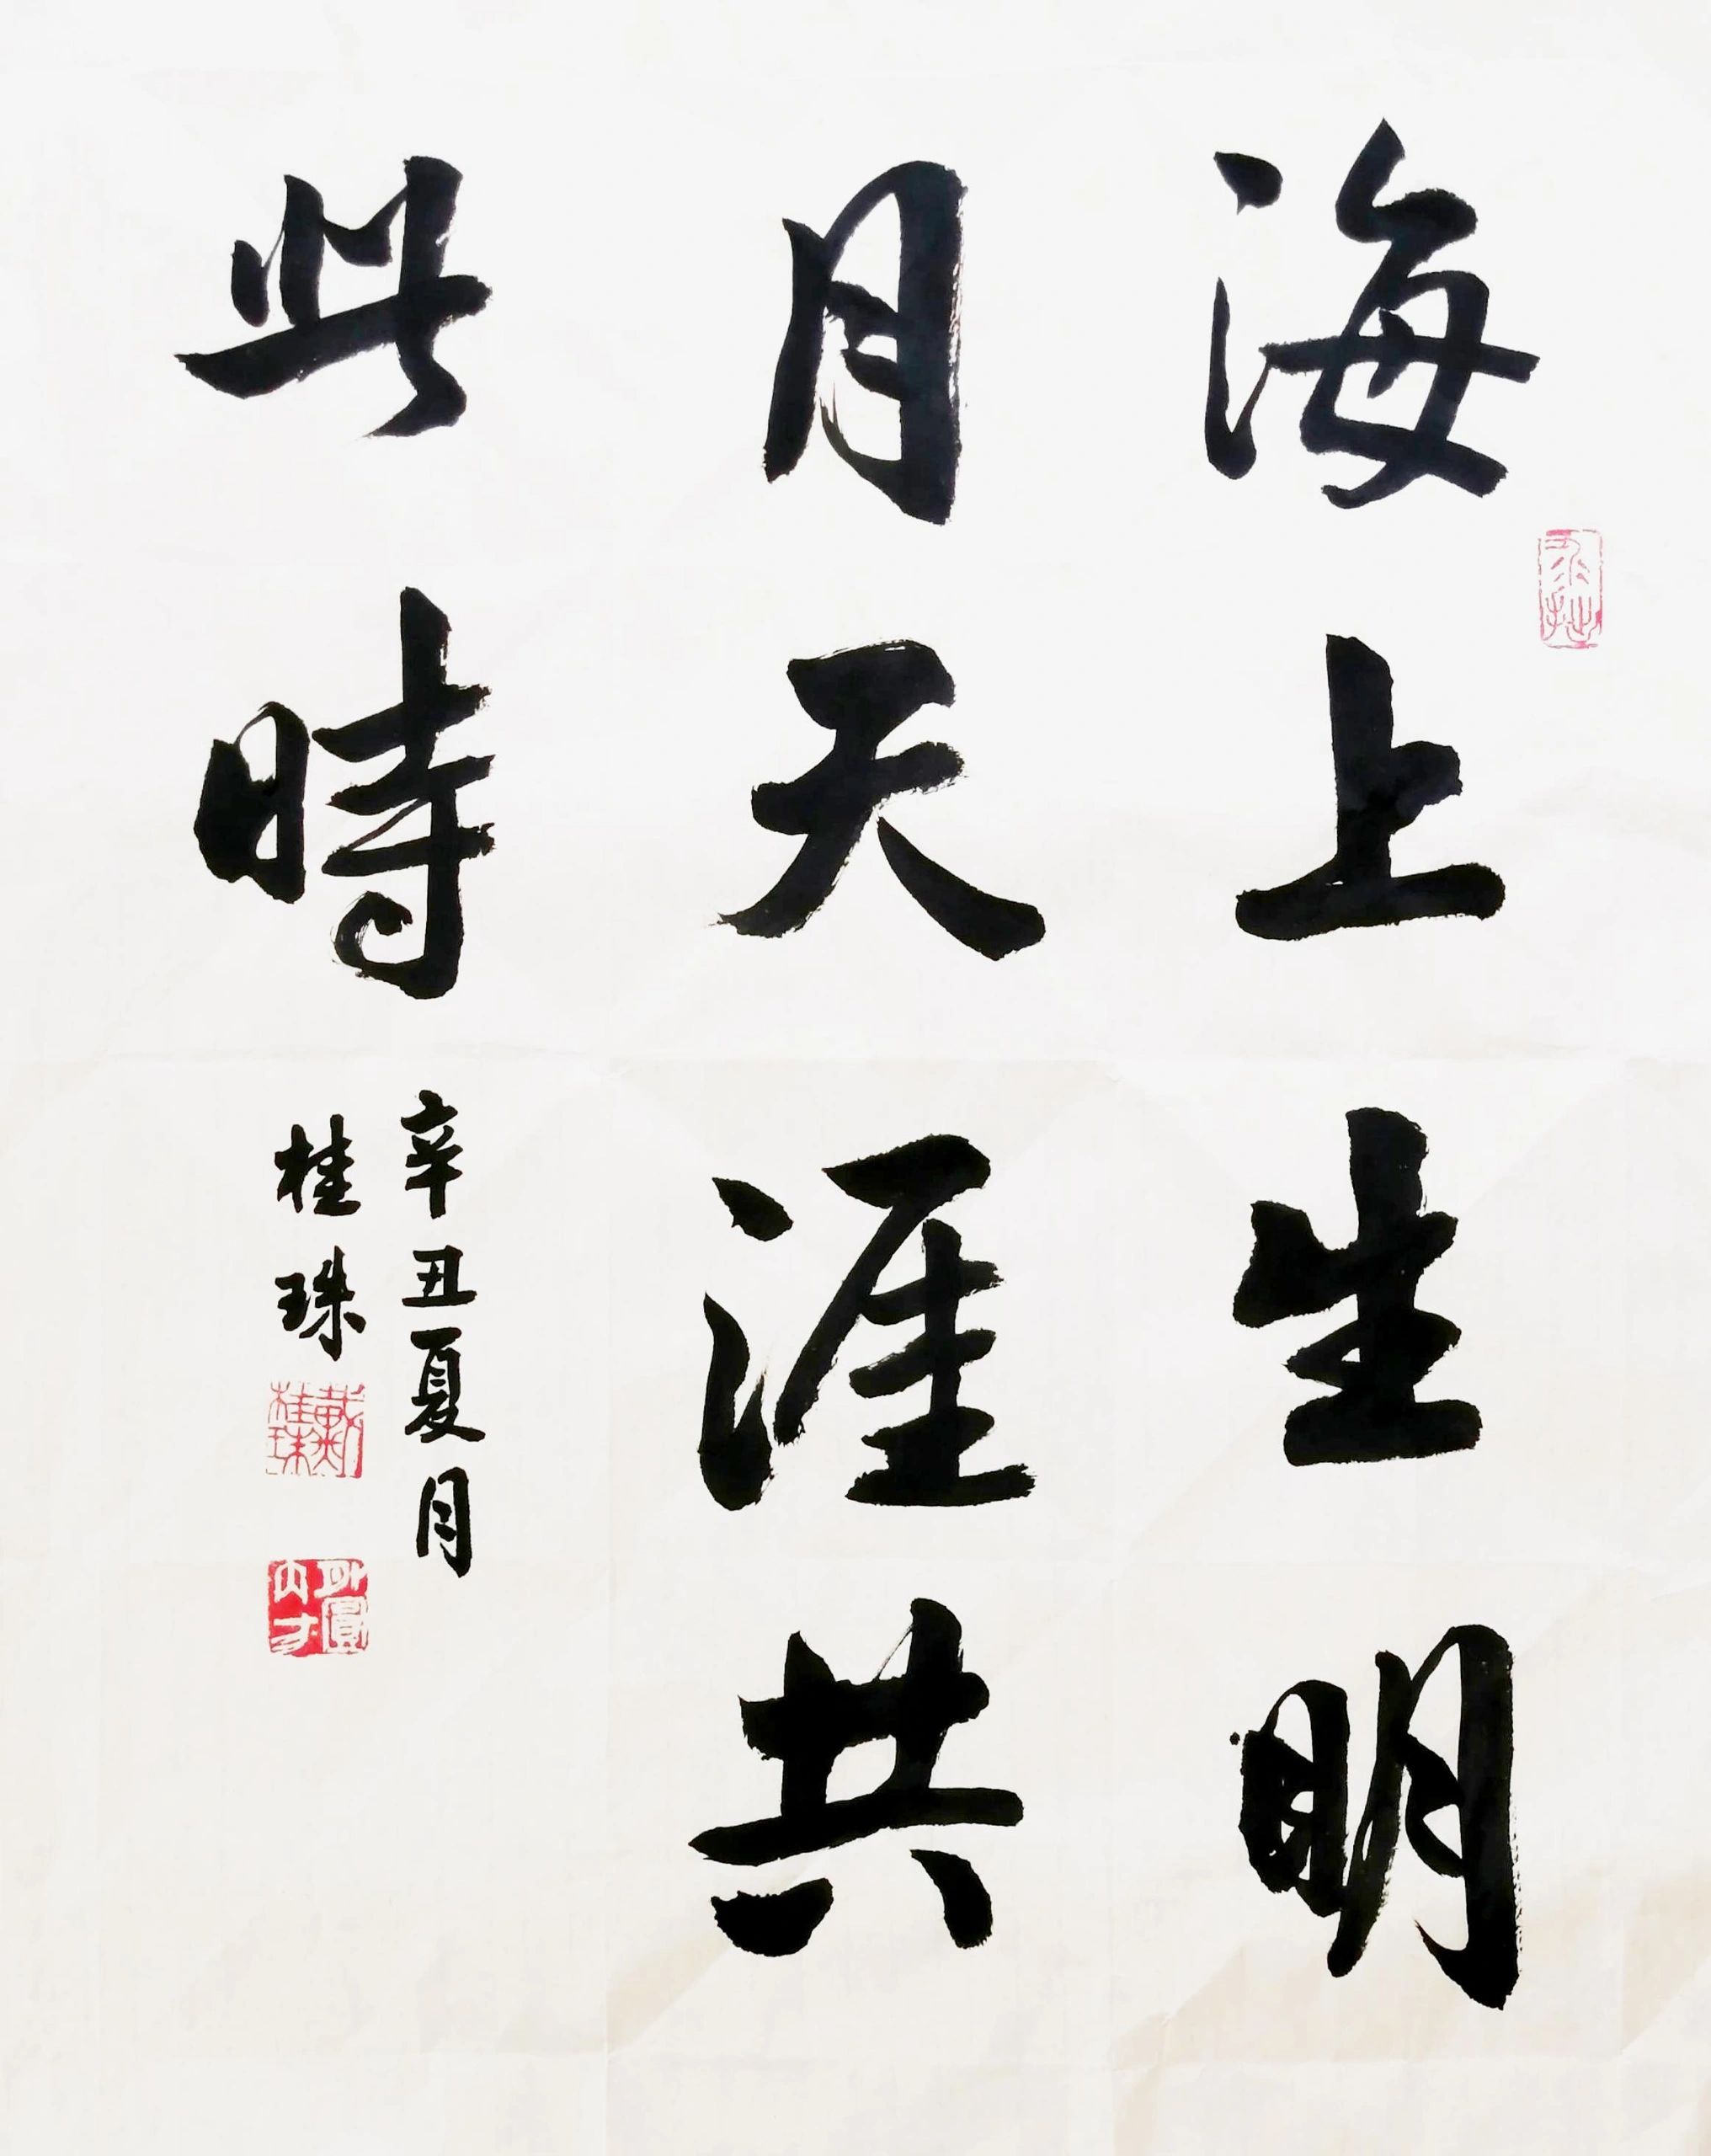 海上生明
月天涯共
此時
辛丑夏月
桂珠
戴桂珠